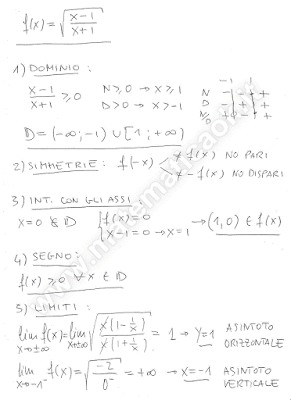 f(x) = √((x-1)/(x+1))
1) DOMINIO:
(x-1)/(x+1) ≥ 0 N≥0 → x≥1 D>0 → x>-1
-1 1
N - - +
D - + +
N/D + - +
D = (-∞;-1) ∪ [1;+∞)
2) SIMMETRIE: f(-x) ≠ f(x) NO PARI
≠ -f(x) NO DISPARI
3) INT. CON GLI ASSI
x=0 ∉ D { f(x)=0
x-1=0 → x=1 → (1,0) ∈ f(x)
4) SEGNO:
f(x) ≥ 0 ∀ x ∈ D
5) LIMITI:
lim x→±∞ f(x) = lim x→±∞ √(x(1-1/x)/x(1+1/x)) = 1 → y=1 ASINTOTO ORIZZONTALE
lim x→-1⁻ f(x) = √(-2/0⁻) = +∞ → x=-1 ASINTOTO VERTICALE